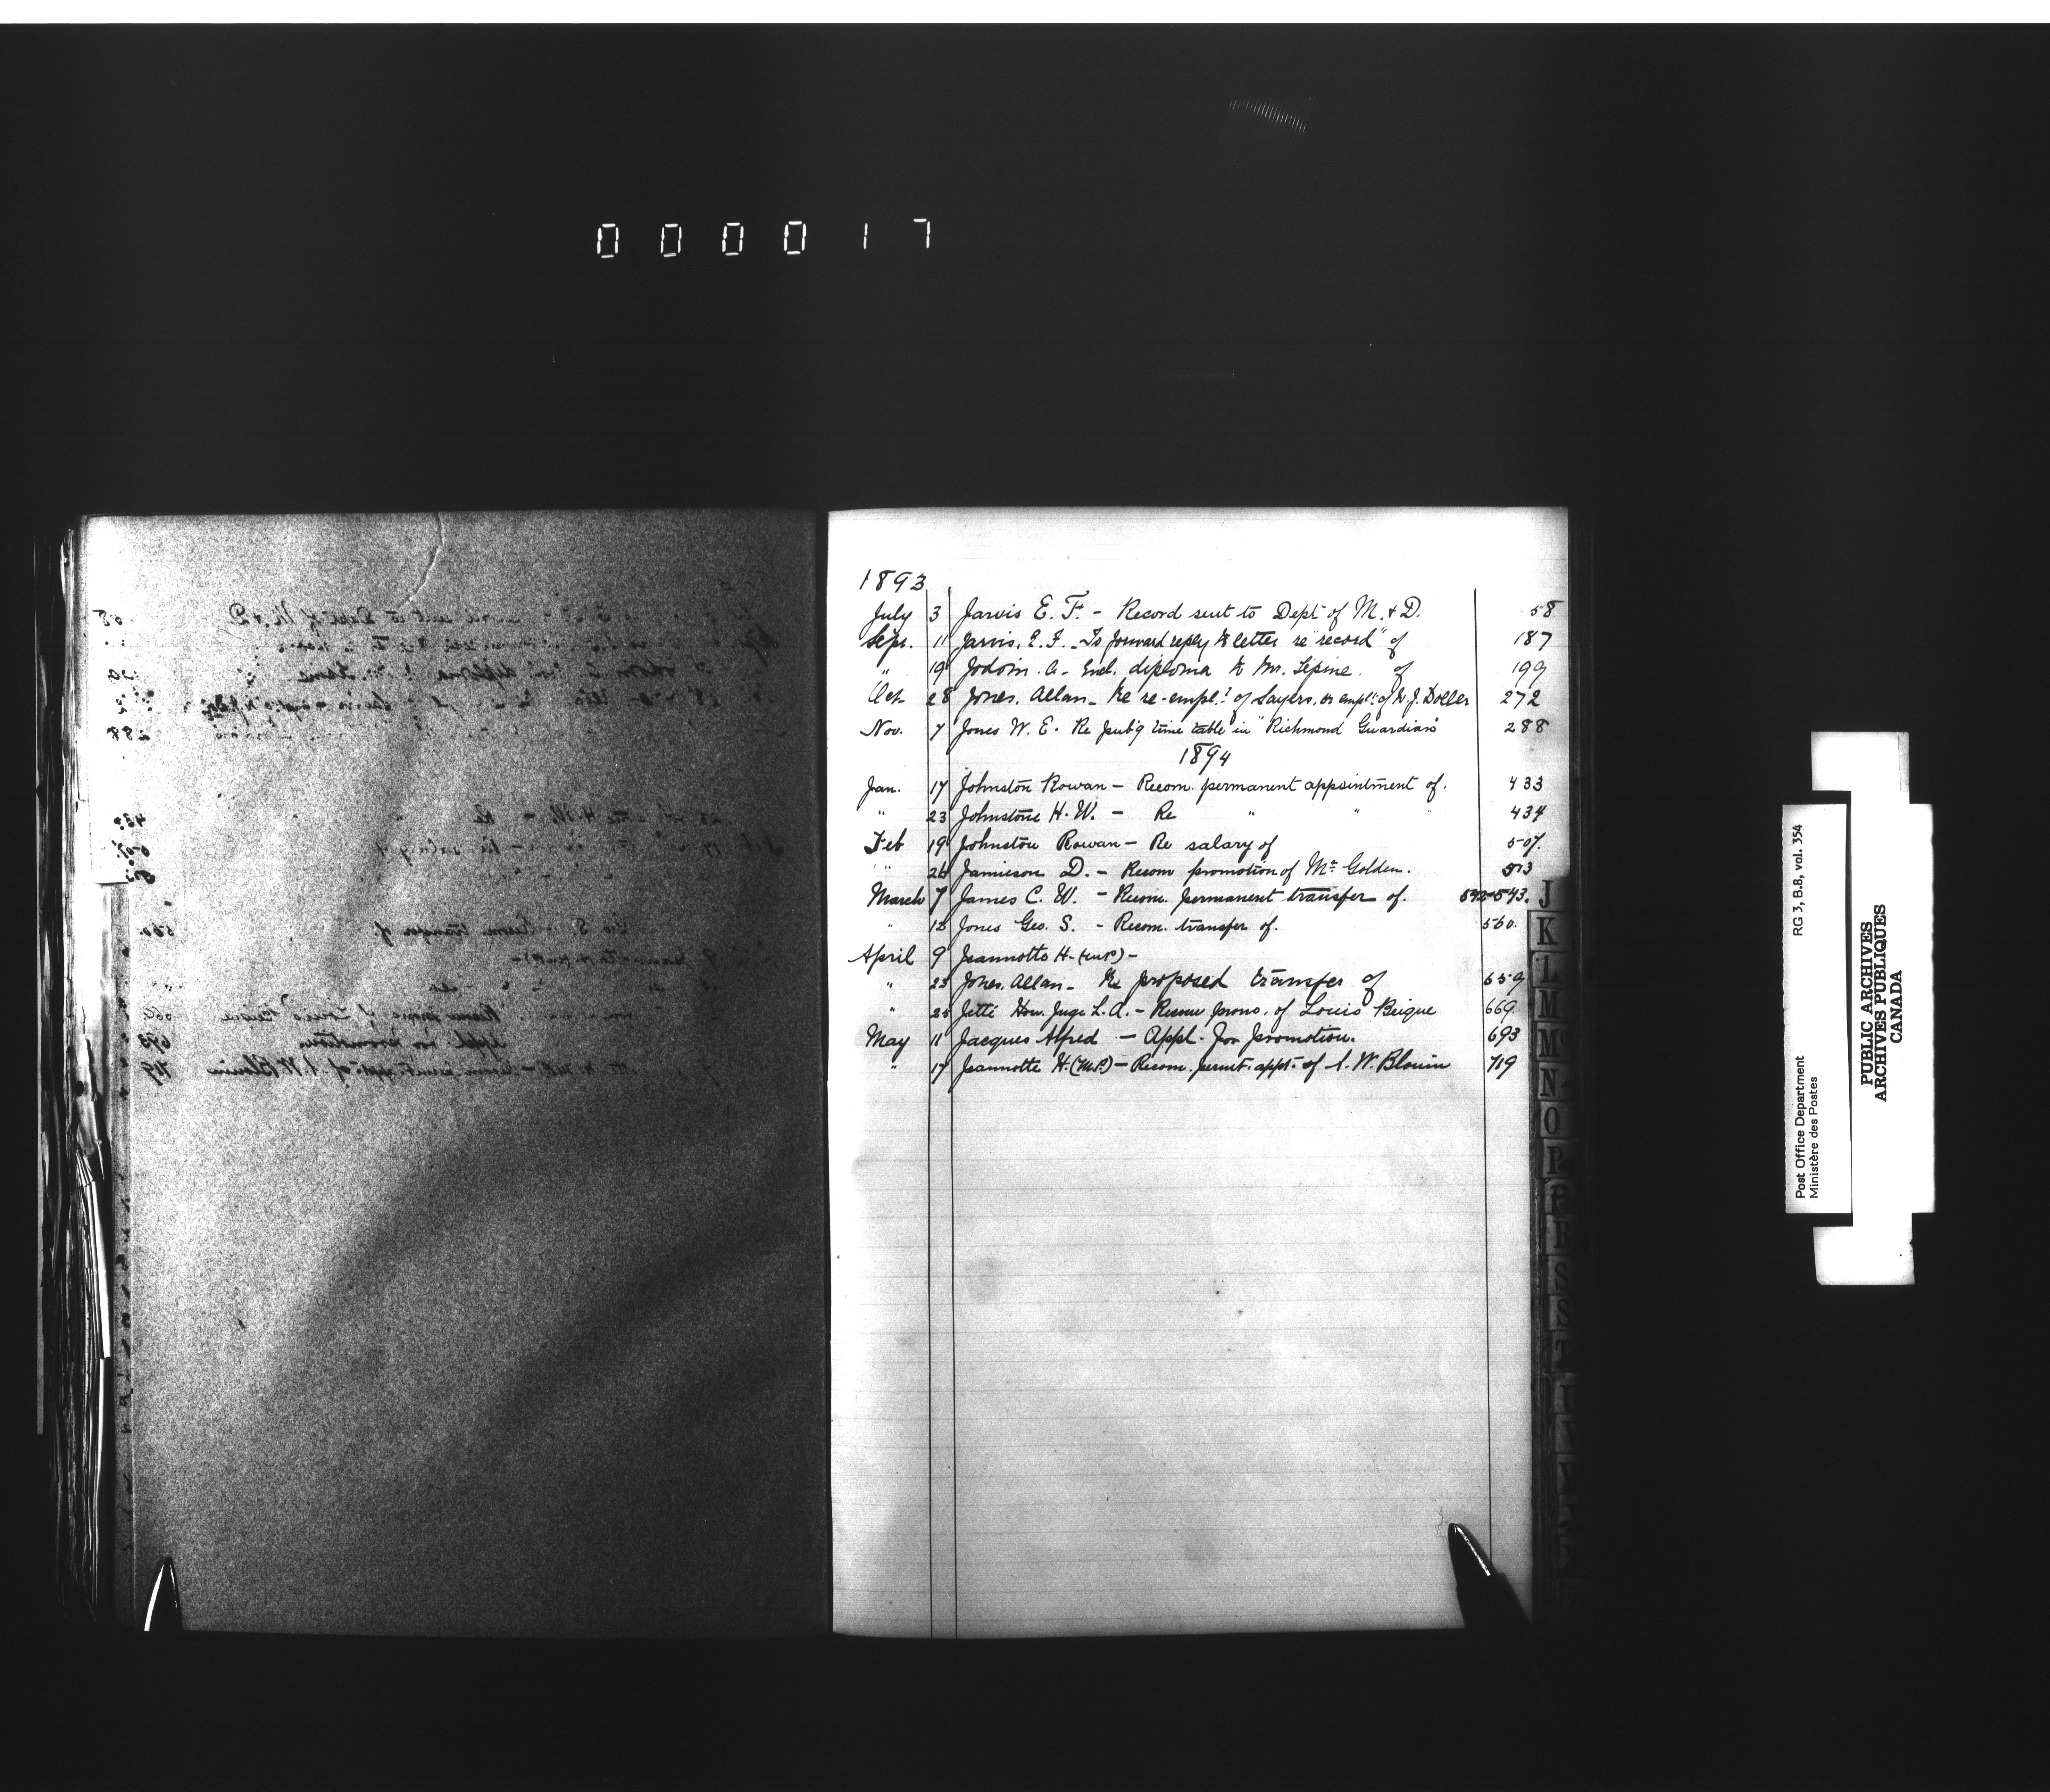 000017
1893
July 3 Jarvis E. F. - Record sent to Dept of M. & D. 58
Sept. 11 Jarvis, E. F. - To forward reply to letter re "record" of 187
" 19 Jodoin. A - Encl. diploma to Mr. Lepine. of 199
Oct 28 Jones, Allan - Re re-empl.t of Sayers, or empl.t of W. J. Doller 272
Nov. 7 Jones W. E. Re pub'g time table in "Richmond Guardian" 288
1894
Jan. 17 Johnston Rowan - Recom. permanent appointment of. 433
" 23 Johnstone H. W. - Re " " 434
Feb 19 Johnston Rowan - Re salary of 507.
" 26 Jamieson D. - Recom promotion of Mr. Golden. 513
March 7 James C. W. - Recom. permanent transfer of. 542-543.
" 13 Jones Geo. S. - Recom. transfer of. 560.
April 9 Jeannotte H. (M.P.) -
" 23 Jones, Allan - Re proposed transfer of 659
" 25 Jetté Hon. Juge L. A. - Recom promo. of Louis Beique 669.
May 11 Jacques Alfred - Appl. for promotion. 693
" 17 Jeannotte H. (M.P.) - Recom. permt. appt. of A. W. Blouin 719
J
K
L
M
M
N
O
P
P
P
S
S
T
Post Office Department
Ministère des Postes
RG 3, B.8, vol. 354
PUBLIC ARCHIVES
ARCHIVES PUBLIQUES
CANADA